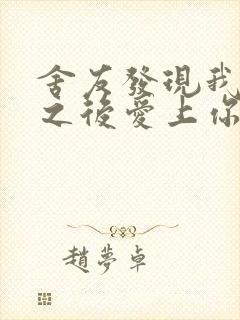 舍友發現我
之後愛上你
趙夢卓